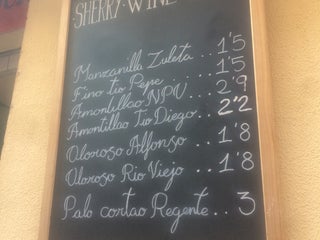 SHERRY · WINE
Manzanilla Zuleta . . 1'5
Fino tio Pepe . . . 1'5
Amontillao NPU . . 2'9
Amontillao Tio Diego . . 2'2
Oloroso Alfonso . . . 1'8
Oloroso Rio Viejo . . . 1'8
Palo cortao Regente . . 3